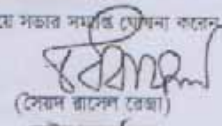 য়ে সভার সমাপ্তি ঘোষনা করেন
(সৈয়দ রাসেল রেজা)